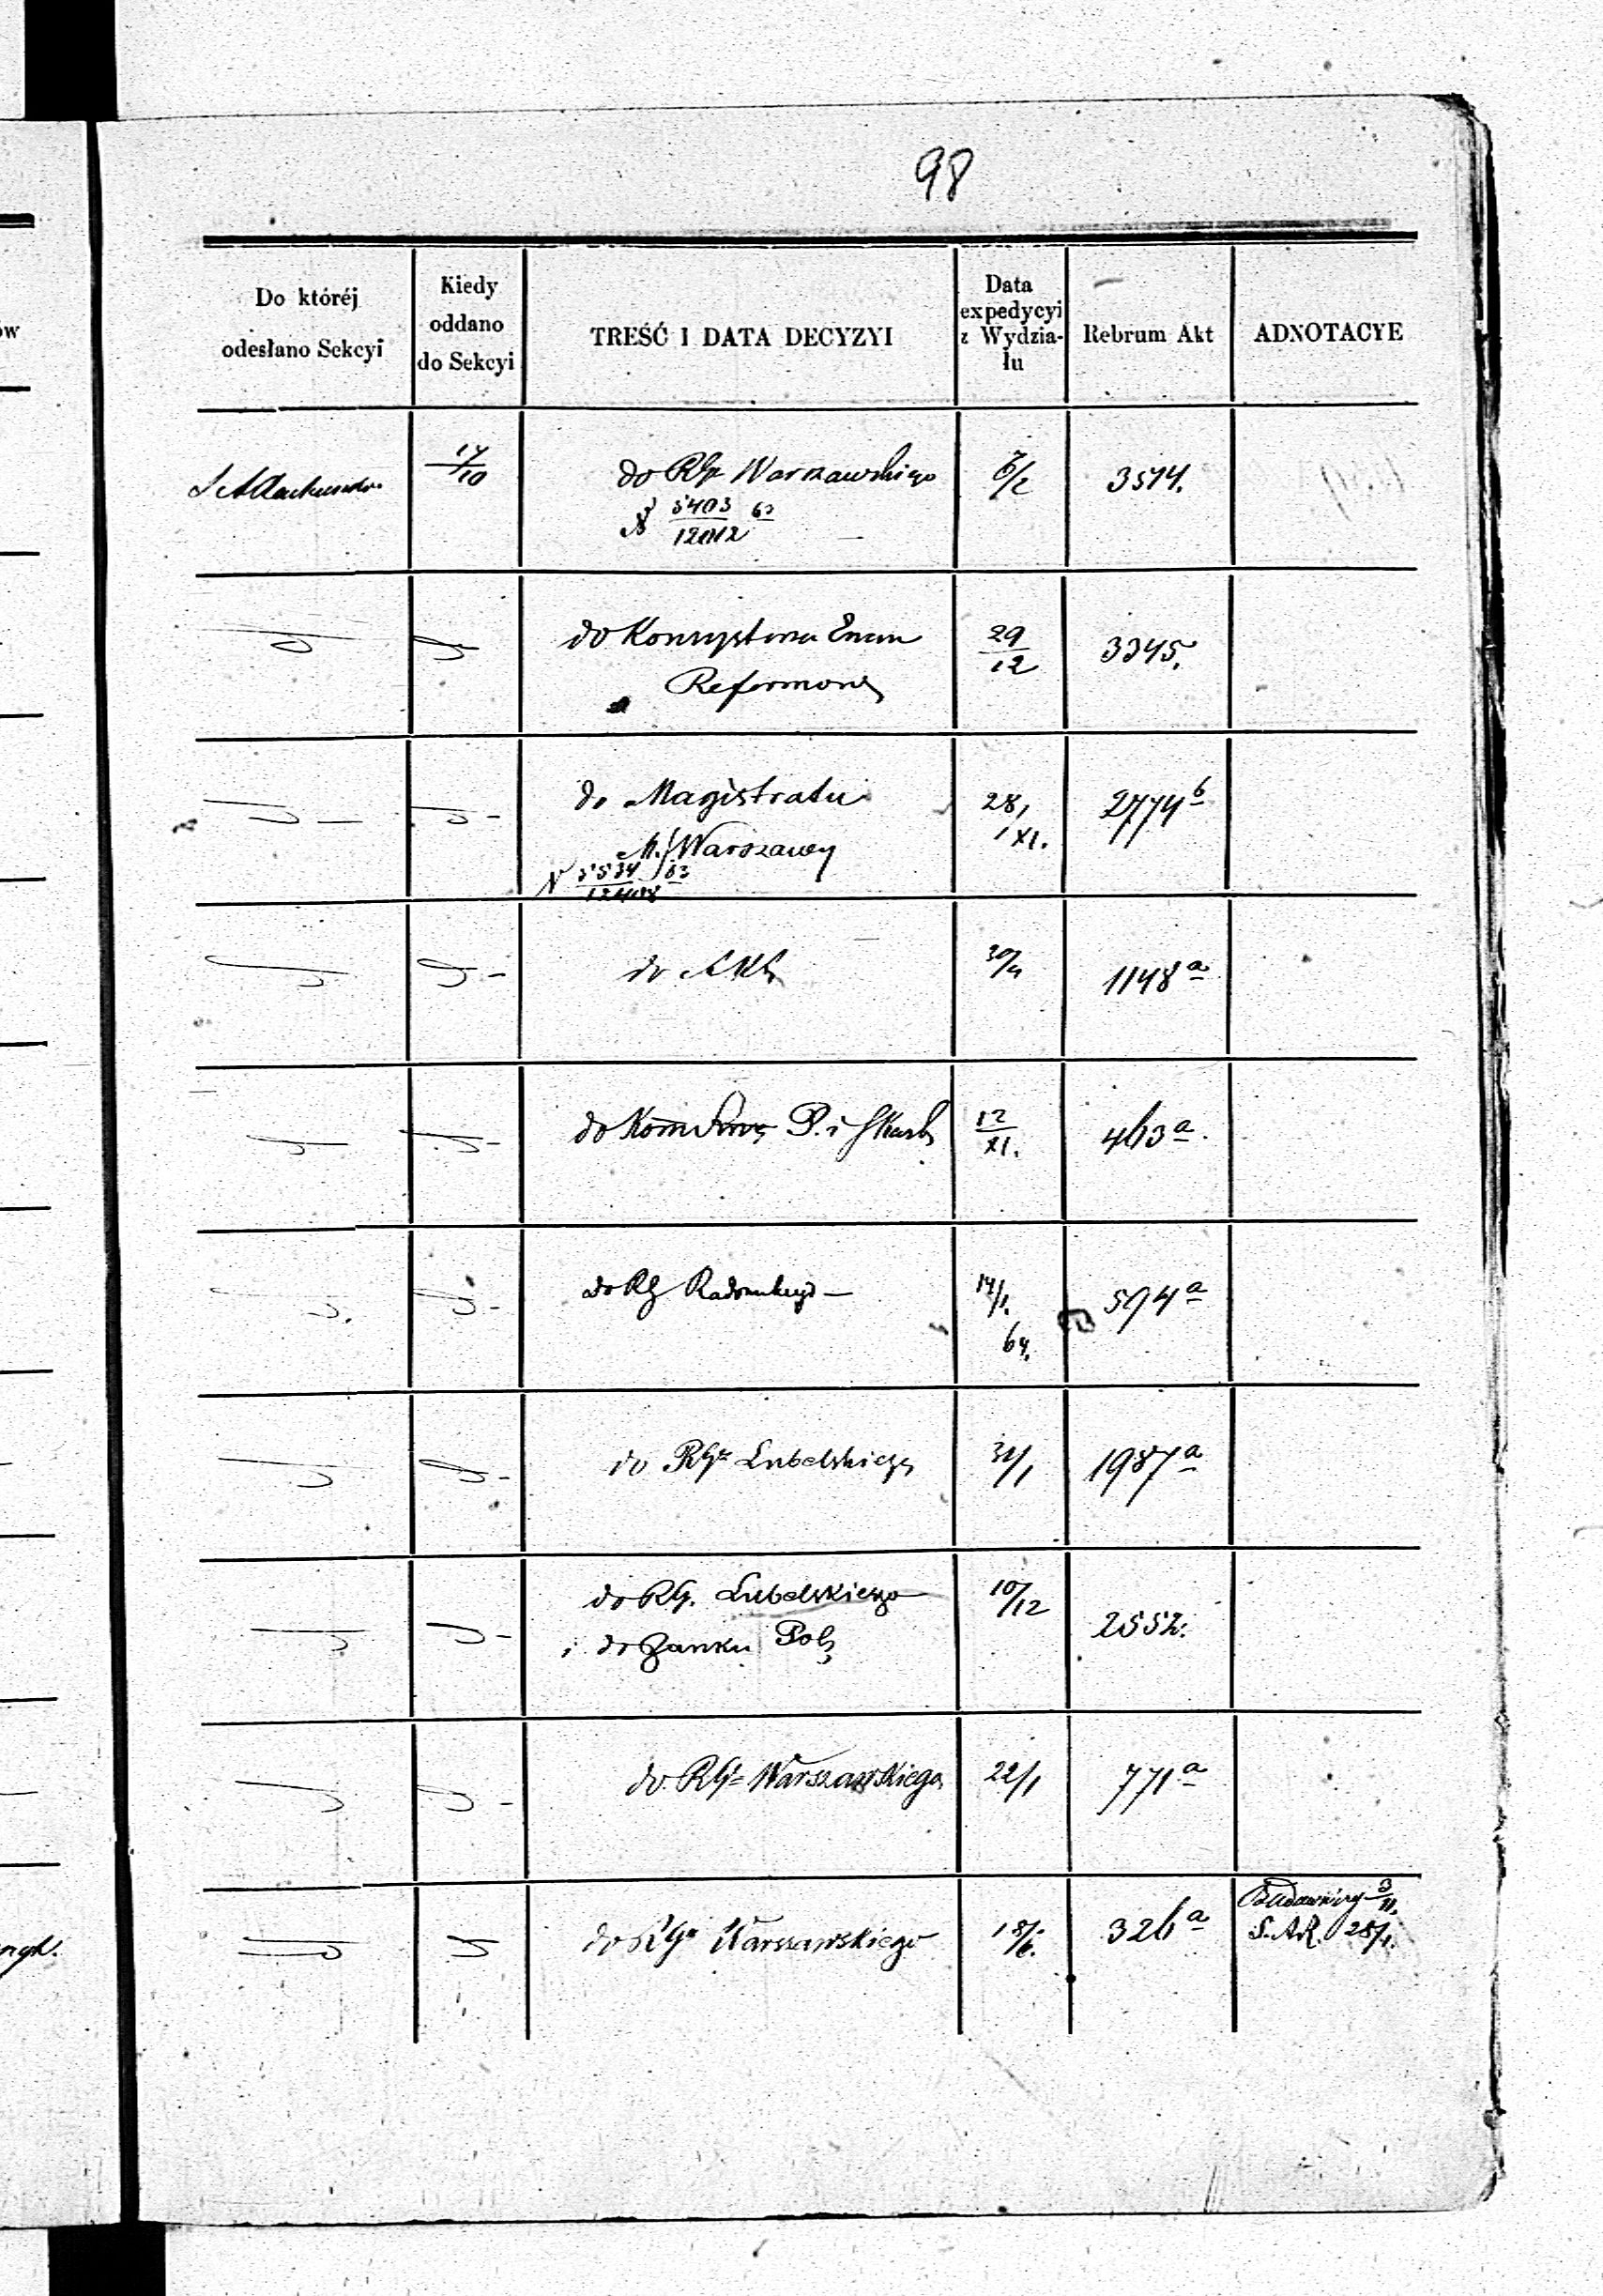 98
Do któréj
odesłano Sekcyi
Kiedy
oddano
do Sekcyi
TREŚĆ I DATA DECYZYI
Data
expedycyi
z Wydzia-
łu
Rebrum Akt
ADNOTACYE
17/10
do RGr Warszawskiego
N 5403/12012 63
3574.
do Konsystorza Ewan
Reformow
29/12
3345.
do Magistratu
M. Warszawy
N 5534/12408 63
28/XI.
2774 b
do Akt
30/4
1148 a
do Kom P. i Skarb
12/XI.
463 a.
do RG Radomskiego
14/1.
64.
594 a
do RGr Lubelskiego
31/1
1987 a
do RG. Lubelskiego
i do Banku Pol
10/12
2552.
do RGr Warszawskiego
22/1
771 a
do RGr Warszawskiego
18/6.
326 a
Budowniczy 3/XI.
S. A.R. 28/1.